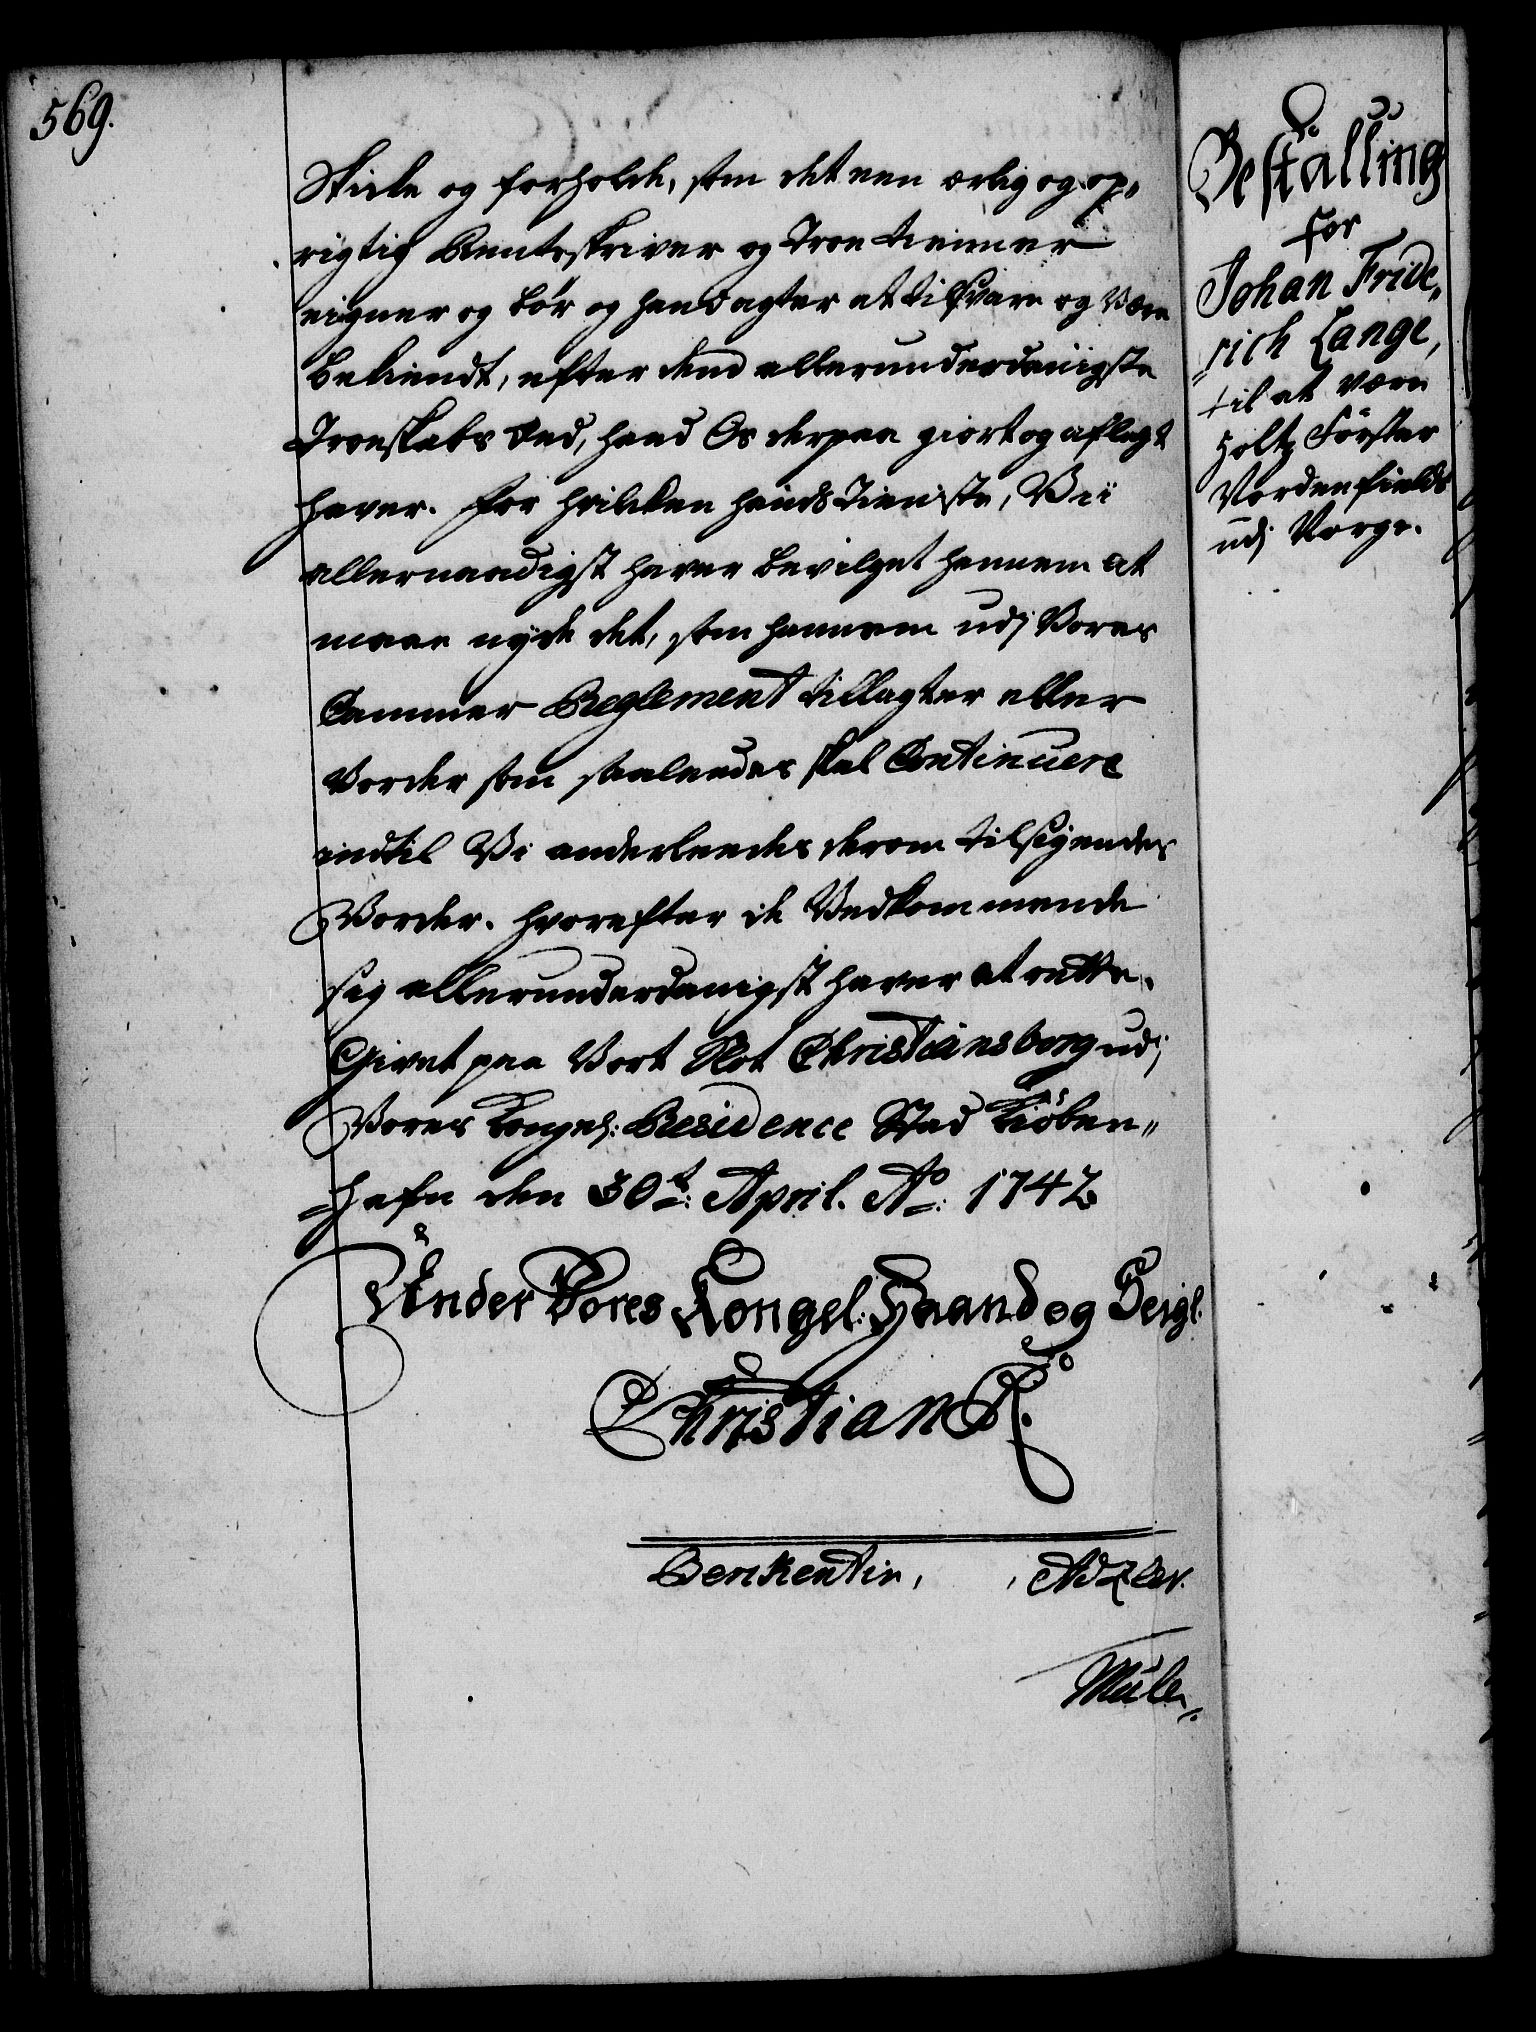 569.
Skicke og forholde, som det een ærlig og op„
rigtig Renteskriver og Troe tienner
eigner og bör og hand agter at tilsvare og være
bekiendt, efter dend allerunderdanigste
Troeskabs Eed, hand Os derpaa giort og aflagt
haver. For hvilcken hands tieniste, Vii
allernaadigst haver bevilget hannem at
maae nyde det, som hannem udj Vores
Cammer Reglement tillagter eller
Vorder som saaleedes skal Continuere
indtil Vi anderleedes derom tilsigendes
Vorder. Hvorefter de Vedkommende
sig allerunderdanigst haver at rette.
Givet paa Vort Slot Christiansborg udj
Vores Kongel: Residence Stad Kiöben„
=hafn den 30t: April. Ao: 1742.
Under Vores Kongel: Haand og Seigl.
Christian R.
Berckentin, Adeler.
Müle„
Bestalling
for
Johan Fride„
„rich Lange,
til at være
Holtz Förster
Nordenfields
udj Norge.